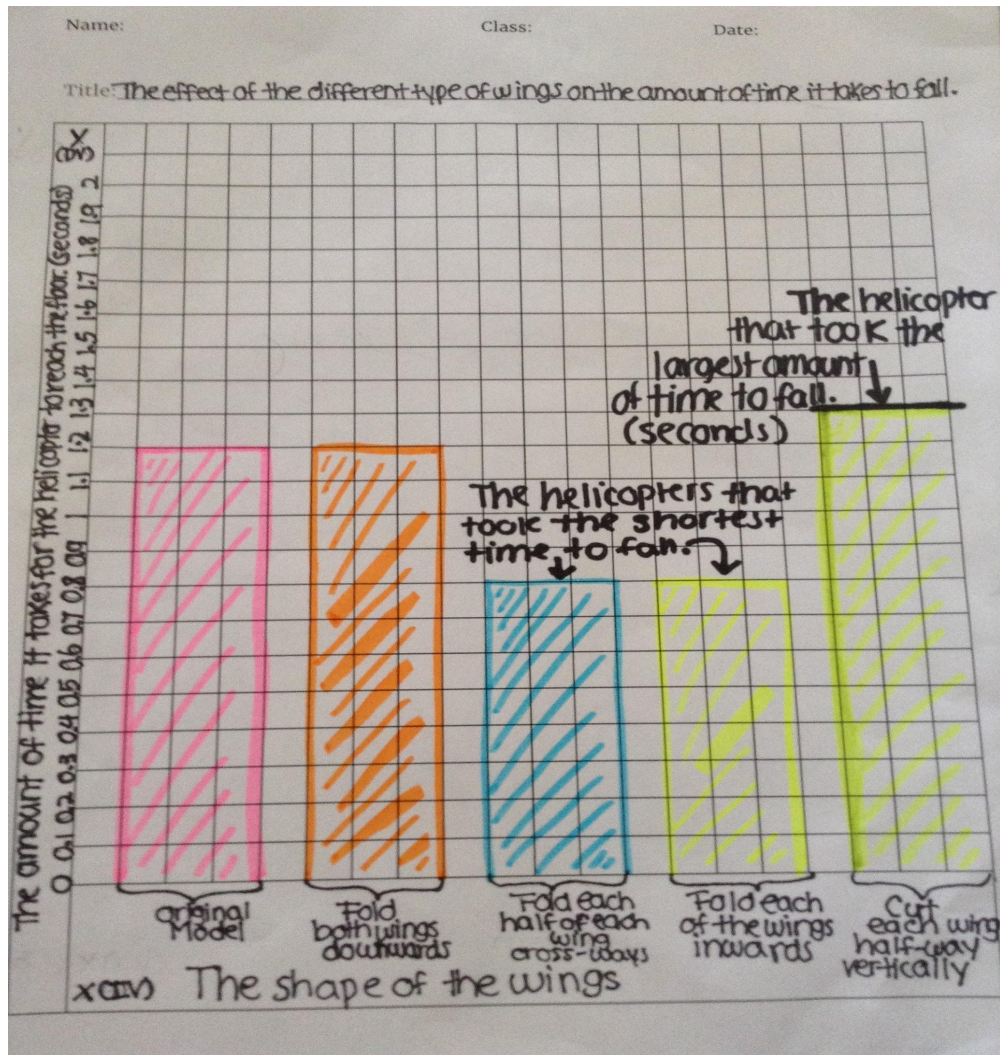 Name:
Class:
Date:
Title: The effect of the different type of wings on the amount of time it takes to fall.
The amount of time it takes for the helicopter to reach the floor. (seconds)
3
2
1.9
1.8
1.7
1.6
1.5
1.4
1.3
1.2
1.1
1
0.9
0.8
0.7
0.6
0.5
0.4
0.3
0.2
0.1
0
The helicopter
that took the
largest amount
of time to fall.
(seconds)
The helicopters that
took the shortest
time to fall.
original
Model
Fold
both wings
downwards
Fold each
half of each
wing
cross-ways
Fold each
of the wings
inwards
Cut
each wing
half-way
vertically
The shape of the wings